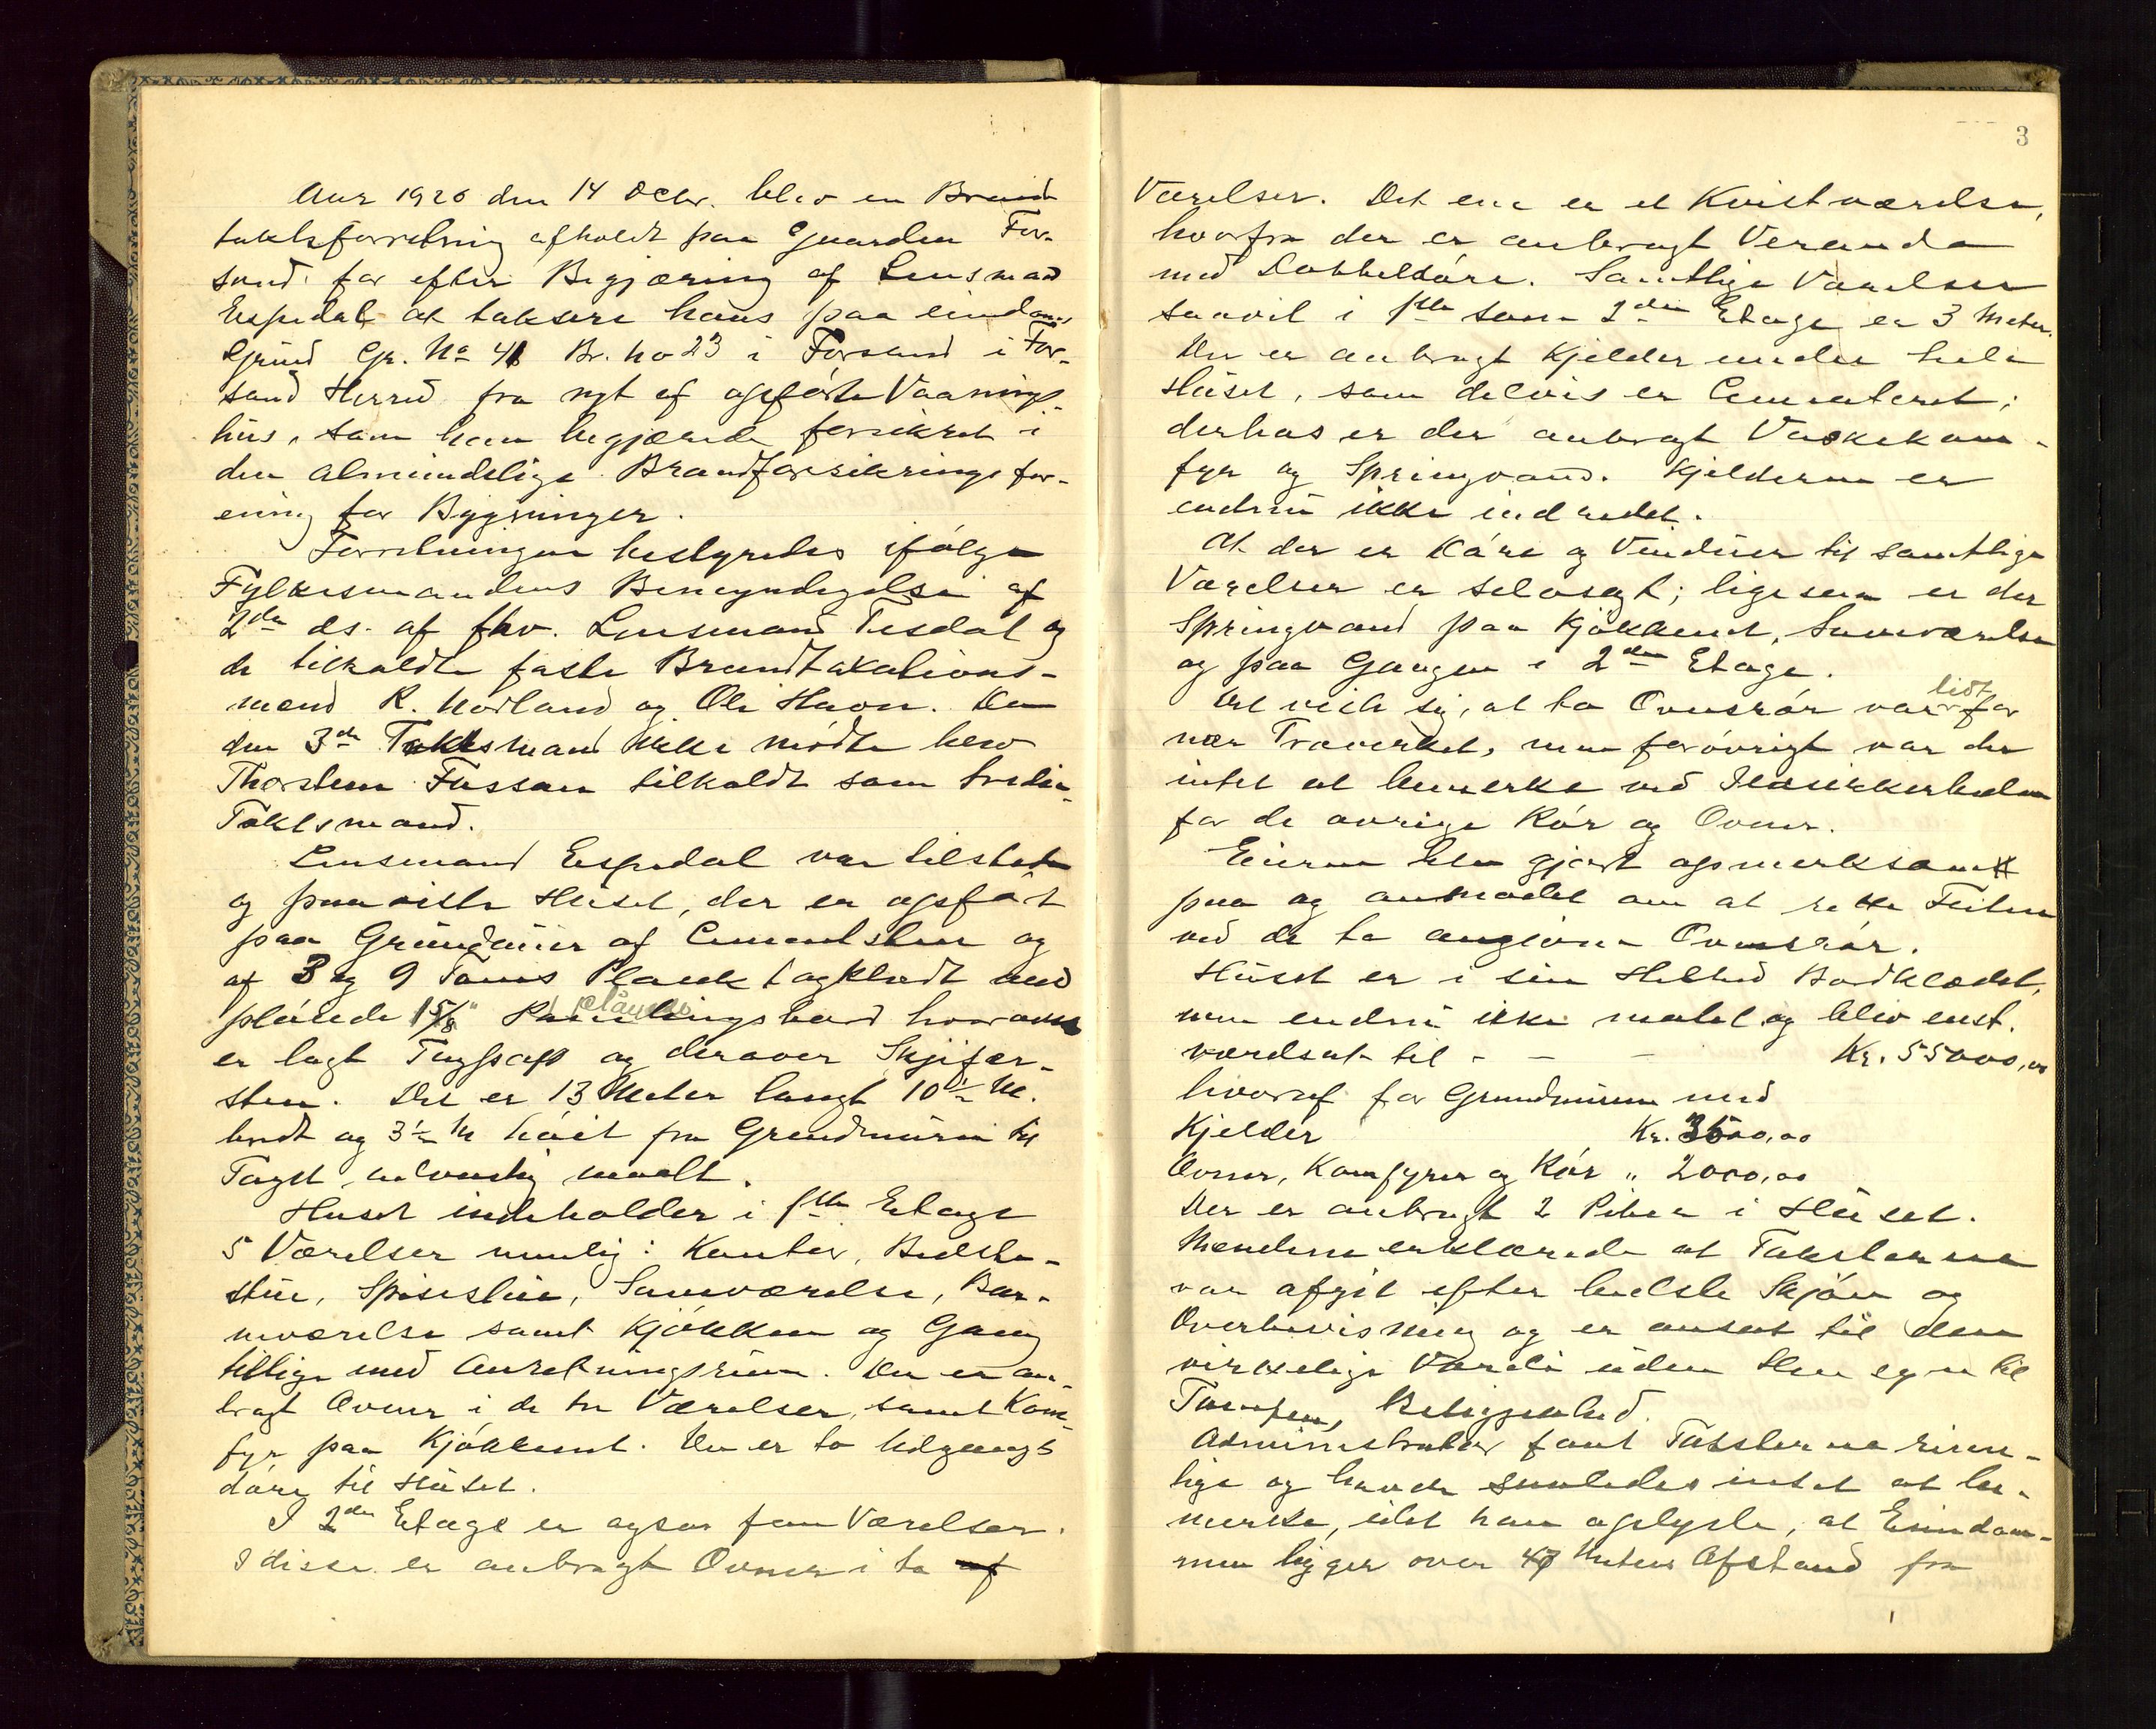 Aar 1920 den 14 Octbr. blev en Brand
taktsforretning afholdt paa Gaarden For-
sand for efter Begjæring af Lensmand
Espedal at taksere hans paa eiendoms
Grund Gr. No 41 Br. No 23 i Forsand i For-
sand Herred fra nyt af opførte Vaanings-
hus, som han begjærede forsikret i
den almindelige Brandforsikringsfor-
ening for Bygninger.
Forretningen bestyredes ifølge
Fylkesmandens Bemyndigelse af
2den ds. af fhv. Lensmand Tisdal og
de tilkaldte faste Brandtakations-
mænd R. Norland og Ole Haon. Da
den 3de Takstmand ikke mødte blev
Thorstein Fossan tilkaldt som tredie
Takstmand.
Lensmand Espedal var tilstede
og paaviste Huset, der er opført
paa Grundmur af Cementsten og
af 3 og 9 Toms Plank tagklædt med
pløiede 1 5/8" plöiede Panelingsbord hvorover
er lagt Tagpap og derover Skjifer-
sten. Det er 13 Meter langt 10 1/2 M.
bredt og 3 1/2 M høit fra Grundmuren til
Taget, udvendig maalt.
Huset indeholder i 1ste Etage
5 Værelser nemlig: Kontor, Bedste-
stue, Spisestue, Soveværelse, Bar-
neværelse samt Kjøkken og Gang
tillige med Anretningsrum. Der er an-
bragt Ovner i de tre Værelser, samt Kom-
fyr paa Kjøkkenet. Der er to Udgangs
døre til Huset.
I 2den Etage er ogsaa fem Værelser.
I disse er anbragt Ovner i to af
3
Værelser. Det ene er et Kvistværelse,
hvorfra der er anbragt Veranda
med Dobbeldøre. Samtlige Værelser
saavel i 1ste som 2den Etage er 3 Meter.
Der er anbragt Kjelder under hele
Huset, som delvis er Cementeret;
derhos er der anbragt Vaskekom-
fyr og Springvand. Kjelderen er
endnu ikke indredet.
At der er Døre og Vinduer til samtlige
Værelser er selvsagt; ligesom er der
Springvand paa Kjøkkenet, Soveværelse
og paa Gangen i 2den Etage.
Det viste sig, at to Ovnsrør var lidt for
nær Træverket, men forøvrigt var der
intet at bemerke ved Ildsikkerheden
for de øvrige Rør og Ovner.
Eieren blev gjort opmerksom
paa og anmodet om at rette Feilen
ved de to angivne Ovnsrør.
Huset er i sin Helhed Bordklædet,
men endnu ikke malet og blev enst.
værdsat til - - - Kr. 55000,00
hvoraf for Grundmuren med
Kjelder Kr. 3500,00
Ovner, Komfyrer og Rør " 2000,00
Der er anbragt 2 Piber i Huset.
Mændene erklærede at Taksterne
var afgit efter bedste Skjøn og
Overbevisning og er ansat til den
virkelige Værdi uden Hensyn til
Tomten, Beliggenhed.
Administrator fant Taksterne rime-
lige og havde saaledes intet at be-
merke, idet han oplyste, at Eiendom-
men ligger over 47 Meters Afstand fra